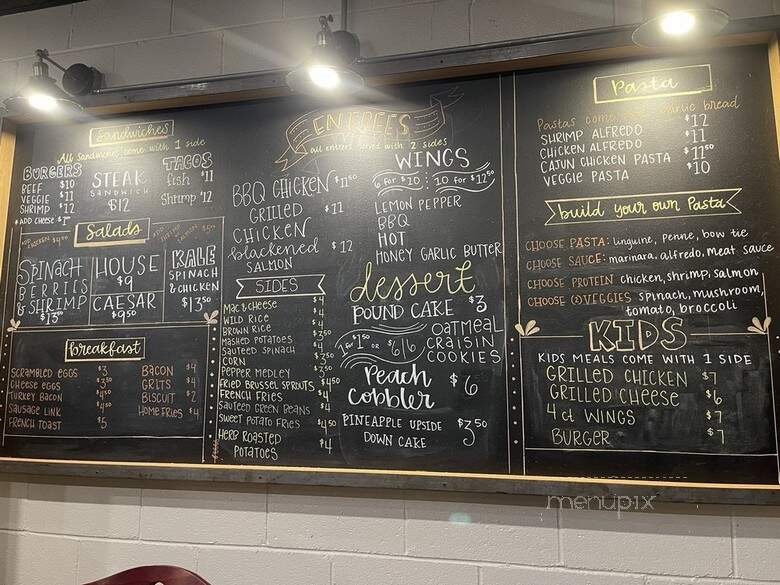 Sandwiches
All sandwiches come with 1 side
BURGERS
BEEF $10
VEGGIE $11
SHRIMP $12
*ADD CHEESE $1
STEAK
SANDWICH
$12
TACOS
fish $11
Shrimp $12
Salads
SPINACH
BERRIES
& SHRIMP
$13.50
HOUSE
$9
CAESAR
$9.50
KALE
SPINACH
& CHICKEN
$13.50
Breakfast
SCRAMBLED EGGS $3
CHEESE EGGS $3.50
TURKEY BACON $4.50
SAUSAGE LINK $4.50
FRENCH TOAST $5
BACON $4
GRITS $4
BISCUIT $2
HOME FRIES $4
ENTREES
all entrees served with 2 sides
BBQ CHICKEN $11.50
GRILLED
CHICKEN $11
blackened
SALMON $12
SIDES
MAC & CHEESE $4
WILD RICE $4
BROWN RICE $4
MASHED POTATOES $4
SAUTEED SPINACH $4
CORN
PEPPER MEDLEY
FRIED BRUSSEL SPROUTS $4.50
FRENCH FRIES $4
SAUTEED GREEN BEANS $4
SWEET POTATO FRIES $4.50
HERB ROASTED
POTATOES $4
WINGS
6 for $10 10 for $12.50
LEMON PEPPER
BBQ
HOT
HONEY GARLIC BUTTER
dessert
POUND CAKE $3
OATMEAL
CRAISIN
COOKIES
1 for $1.50 or $6/6
Peach
Cobbler $6
PINEAPPLE UPSIDE
DOWN CAKE $3.50
Pasta
Pastas come garlic bread
SHRIMP ALFREDO $12
CHICKEN ALFREDO $11
CAJUN CHICKEN PASTA $11.50
VEGGIE PASTA $10
build your own Pasta
CHOOSE PASTA: linguine, penne, bow tie
CHOOSE SAUCE: marinara, alfredo, meat sauce
CHOOSE PROTEIN chicken, shrimp, salmon
CHOOSE (2) VEGGIES spinach, mushroom,
tomato, broccoli
KIDS
KIDS MEALS COME WITH 1 SIDE
GRILLED CHICKEN $7
GRILLED CHEESE $6
4 ct WINGS $7
BURGER $7
menupix